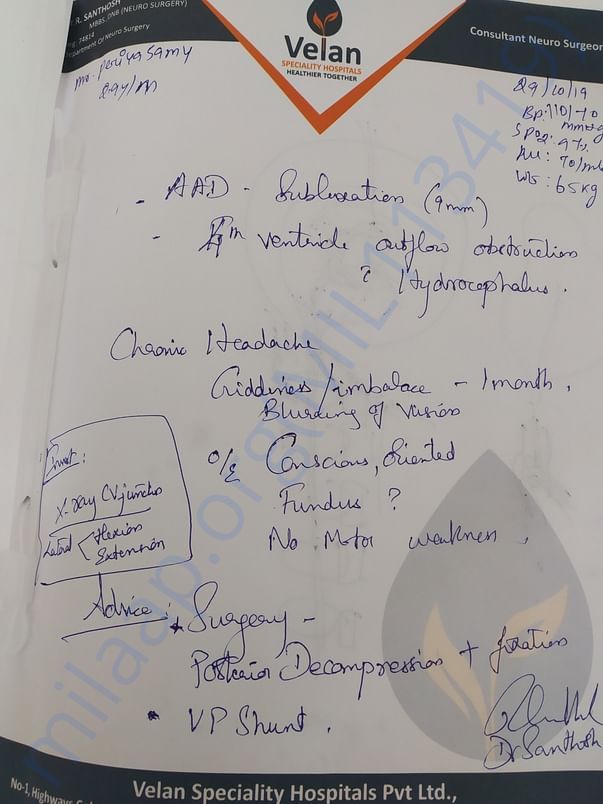 R. SANTHOSH
MBBS, DNB (NEURO SURGERY)
74814
Department Of Neuro Surgery
Velan
SPECIALITY HOSPITALS
HEALTHIER TOGETHER
Consultant Neuro Surgeon
Mr. Periyasamy
29y/M
29/10/19
Bp: 110/70
mmHg
SPO2: 97%
70/mt
Wt: 65kg
- AAD - Subluxation (9mm)
- IVth ventricle outflow obstruction
? Hydrocephalus.
Chronic Headache
Giddiness/imbalace - 1 month,
Blurring of Vision
O/E Conscious, Oriented
Fundus ?
No Motor weakness,
Invest:
X-ray CV junction
Lateral < flexion
Extension
Advice: * Surgery -
Posterior Decompression + fixation
* VP Shunt.
Dr Santhosh
No-1, Highways
Velan Speciality Hospitals Pvt Ltd.,